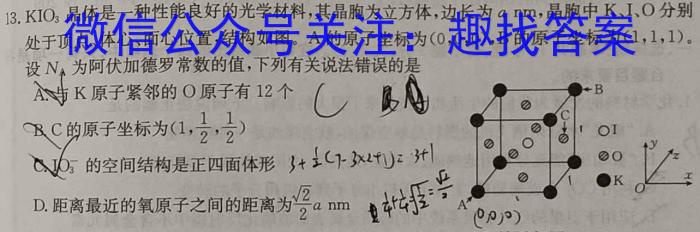 13. KIO₃ 晶体是一种性能良好的光学材料,其晶胞为立方体,边长为 a nm,晶胞中 K、I、O 分别
处于顶 体 面心位置,结构如图。A 的原子坐标为(0, 的原子坐标 (1,1,1)。
微信公众号关注:趣找答案
设 N_A 为阿伏加德罗常数的值,下列有关说法错误的是
A. 与 K 原子紧邻的 O 原子有 12 个
B. C 的原子坐标为(1, 1/2, 1/2)
C. IO₃⁻ 的空间结构是正四面体形 3+½(7-3×2+1)=3+1
D. 距离最近的氧原子之间的距离为 √2/2 a nm
A
B
C
(0,0,0)
○I
⊘O
●K
y
z
x
O